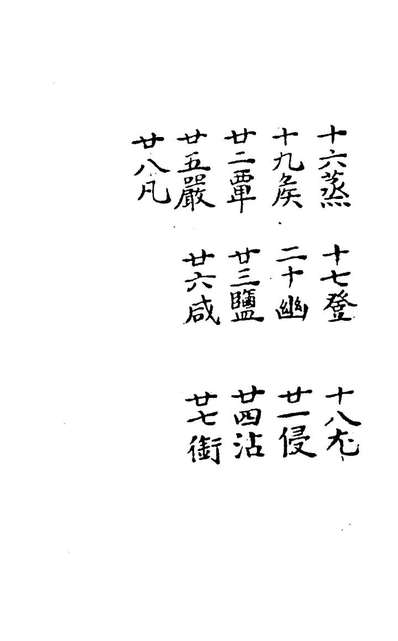 十六蒸 十七登 十八尤
十九矦 二十幽 廿一侵
廿二覃 廿三鹽 廿四沾
廿五嚴 廿六咸 廿七銜
廿八凡